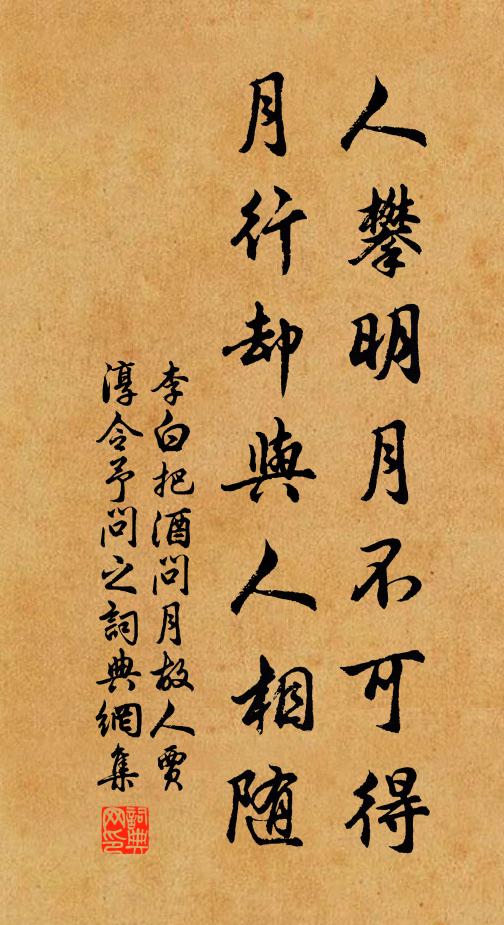 人攀明月不可得
月行却與人相随
李白把酒問月故人賈
淳令予問之詞典網集
詞典
网印